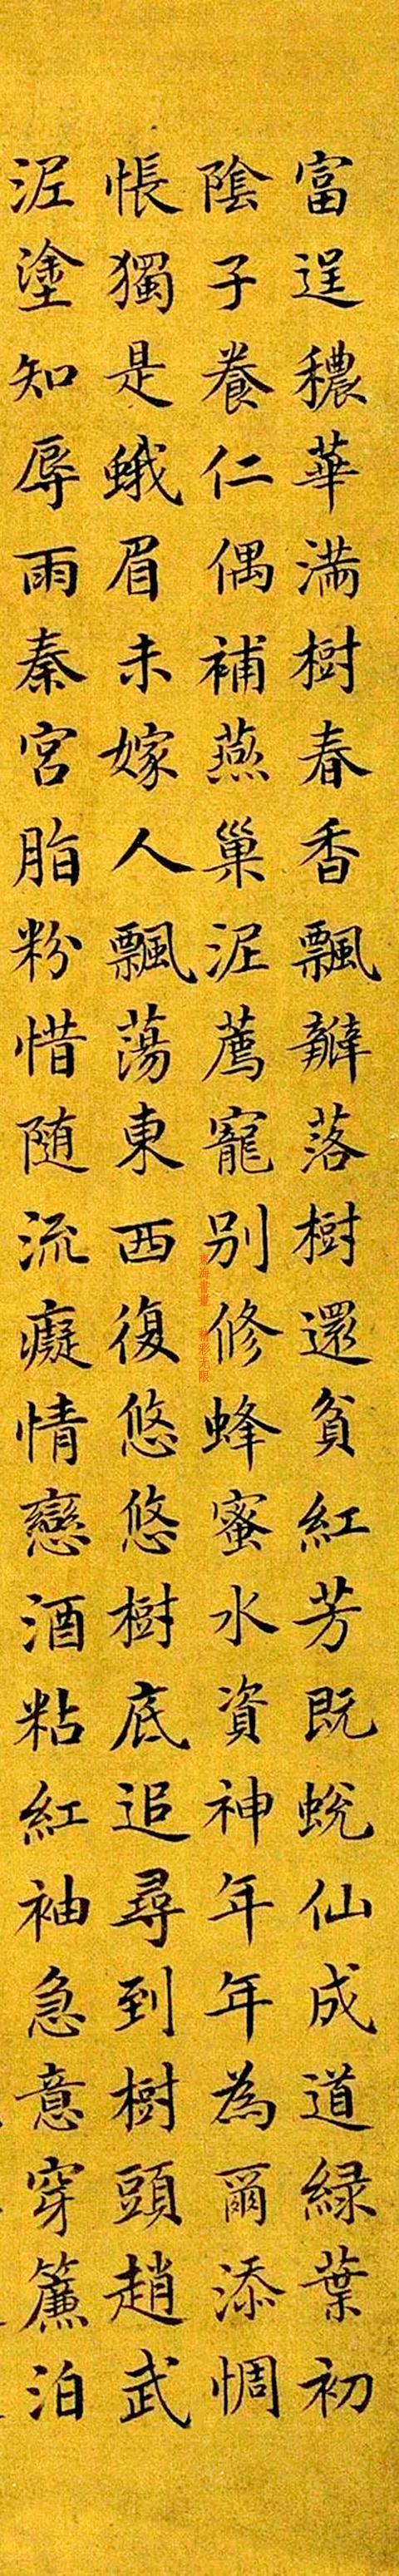 富逞穠華滿樹春香飄瓣落樹還貧紅芳既蛻仙成道綠葉初
陰子養仁偶補燕巢泥薦寵別修蜂蜜水資神年年為爾添惆
悵獨是蛾眉未嫁人飄蕩東西復悠悠樹底追尋到樹頭趙武
泥塗知辱雨秦宮脂粉惜随流癡情戀酒粘紅袖急意穿簾泊
東海書畫 精彩无限